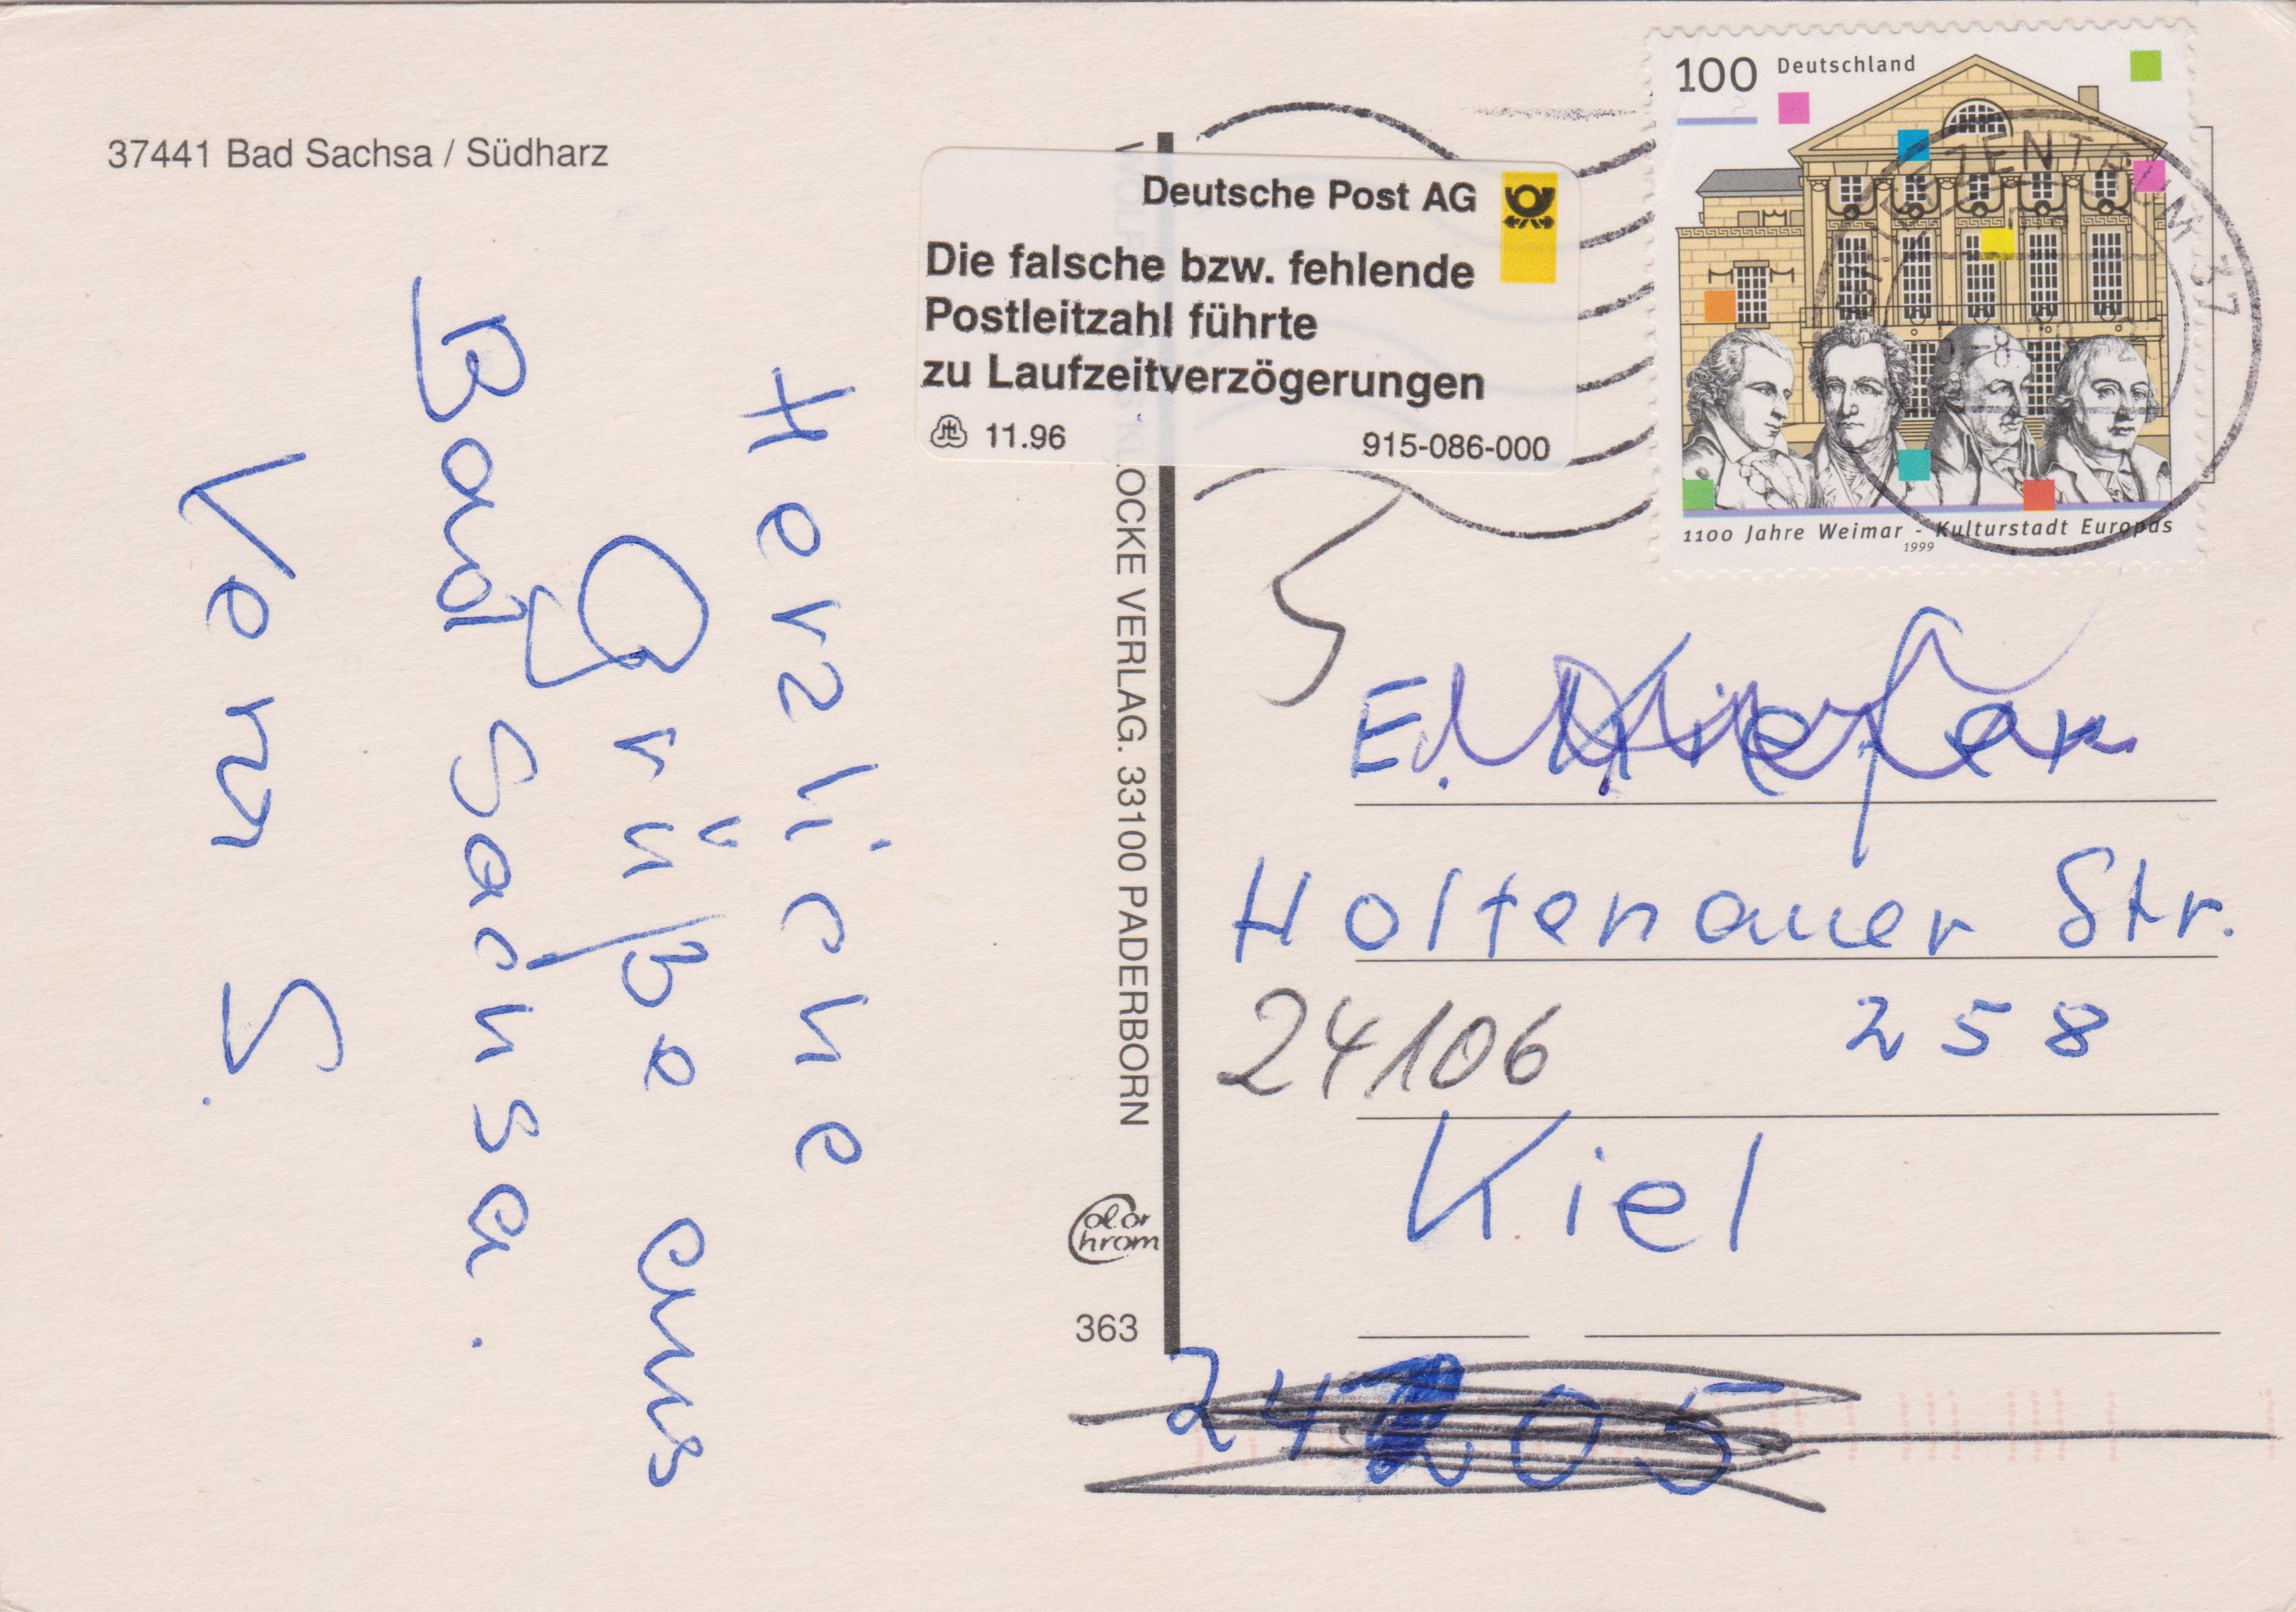 37441 Bad Sachsa / Südharz
Herzliche
Grüße aus
Bad Sachsa.
Verw S.
OCKE VERLAG. 33100 PADERBORN
Color
Chrom
363
Deutsche Post AG
Die falsche bzw. fehlende
Postleitzahl führte
zu Laufzeitverzögerungen
11.96
915-086-000
100 Deutschland
1100 Jahre Weimar - Kulturstadt Europas
1999
BRIEFZENTRUM 37
E.
Holtenauer Str.
258
24106
Kiel